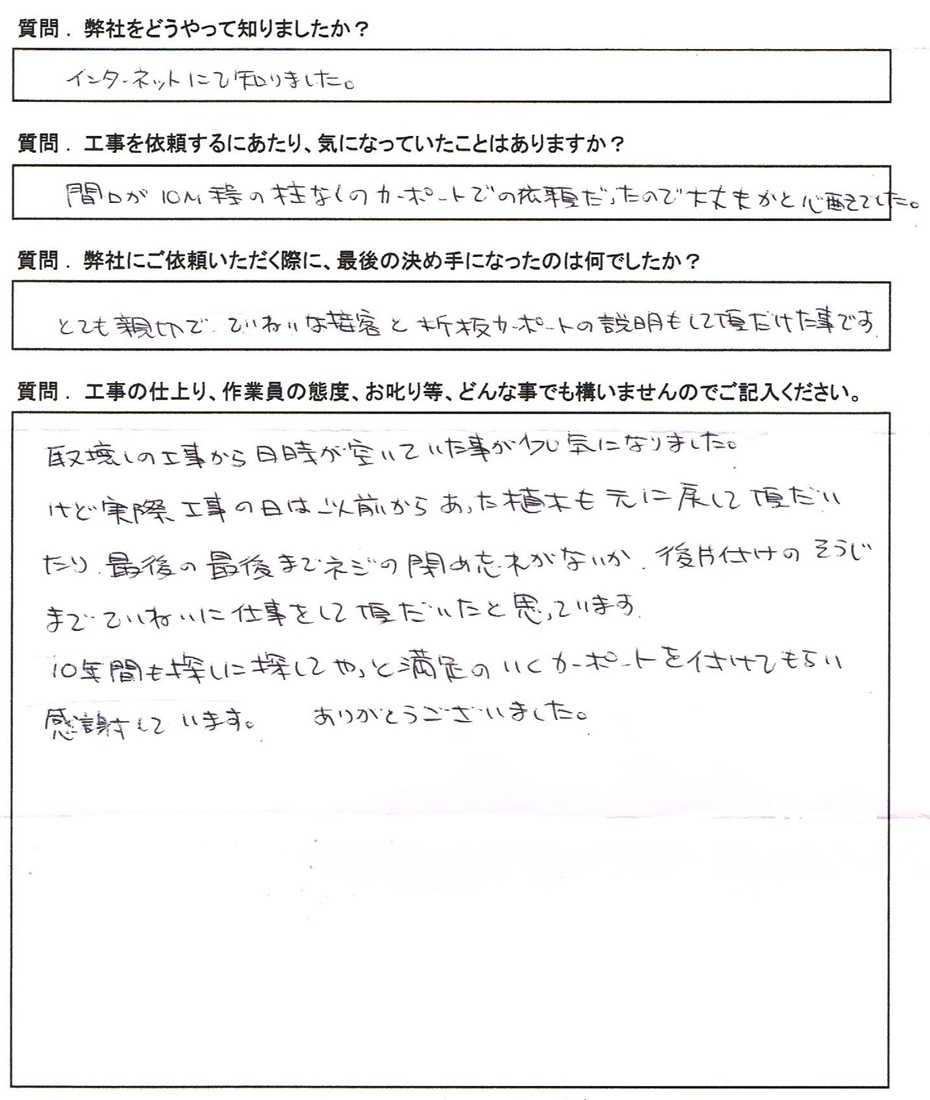 質問．弊社をどうやって知りましたか？
インターネットにて知りました。
質問．工事を依頼するにあたり、気になっていたことはありますか？
間口が10M程の柱なしのカーポートでの依頼だったので大丈夫かと心配でした。
質問．弊社にご依頼いただく際に、最後の決め手になったのは何でしたか？
とても親切で、ていねいな接客と折板カーポートの説明もして頂だけた事です
質問．工事の仕上り、作業員の態度、お叱り等、どんな事でも構いませんのでご記入ください。
取壊しの工事から日時が空いていた事が少し気になりました。
けど実際工事の日は以前からあった植木も元に戻して頂だい
たり、最後の最後までネジの閉め忘れがないか、後片付けのそうじ
までていねいに仕事をして頂だいたと思っています。
10年間も探しに探してやっと満足のいくカーポートを付けてもらい
感謝しています。　ありがとうございました。